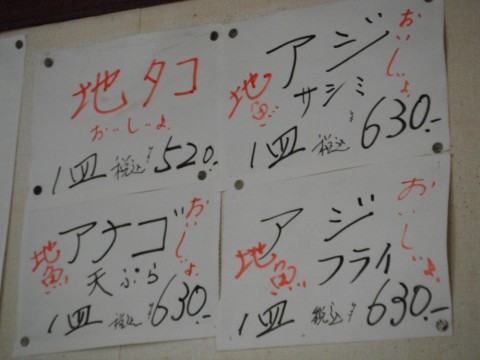 地タコ
おいしいよ
1皿 税込¥520.-
アジ
サシミ
地魚
おいしいよ
1皿 税込¥630.-
アナゴ
天ぷら
地魚
おいしいよ
1皿 税込¥630.-
アジ
フライ
地魚
おいしいよ
1皿 税込¥630.-